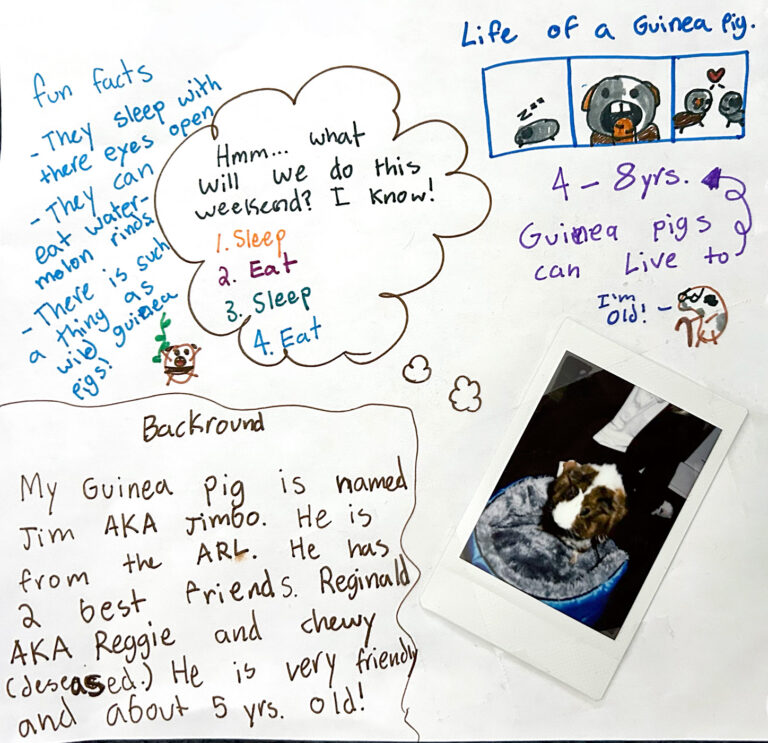 Life of a Guinea Pig.
fun facts
- They sleep with
there eyes open
- They can
eat water-
molon rinds
- There is such
a thing as
wild guinea
pigs!
Hmm... what
will we do this
weekend? I know!
1. Sleep
2. Eat
3. Sleep
4. Eat
zzz
4 - 8 yrs.
Guinea pigs
can Live to
I'm
old!
Backround
My Guinea pig is named
Jim AKA Jimbo. He is
from the ARL. He has
2 best friends. Reginald
AKA Reggie and chewy
(deseased.) He is very friendly
and about 5 yrs. old!